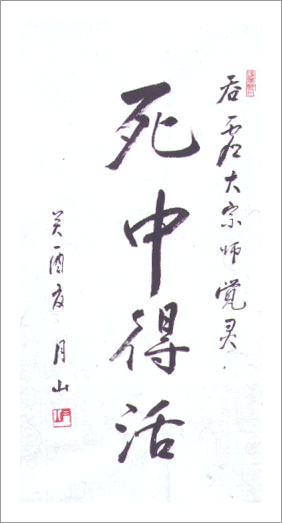 吞虚大宗师觉灵
死中得活
癸酉夜 月山